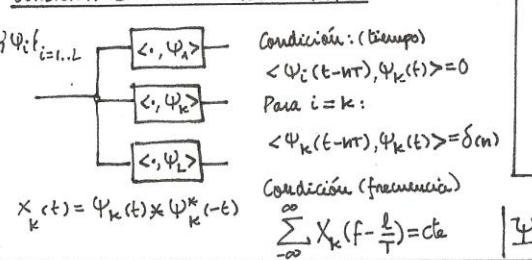 {Ψi}i=1..L
<·,Ψ1>
<·,Ψk>
<·,ΨL>
Xk(t)=Ψk(t)*Ψk*(-t)
Condición: (tiempo)
<Ψi(t-nT),Ψk(t)>=0
Para i=k:
<Ψk(t-nT),Ψk(t)>=δ(n)
Condición (frecuencia)
∑_{-∞}^{∞} Xk(f-l/T)=cte